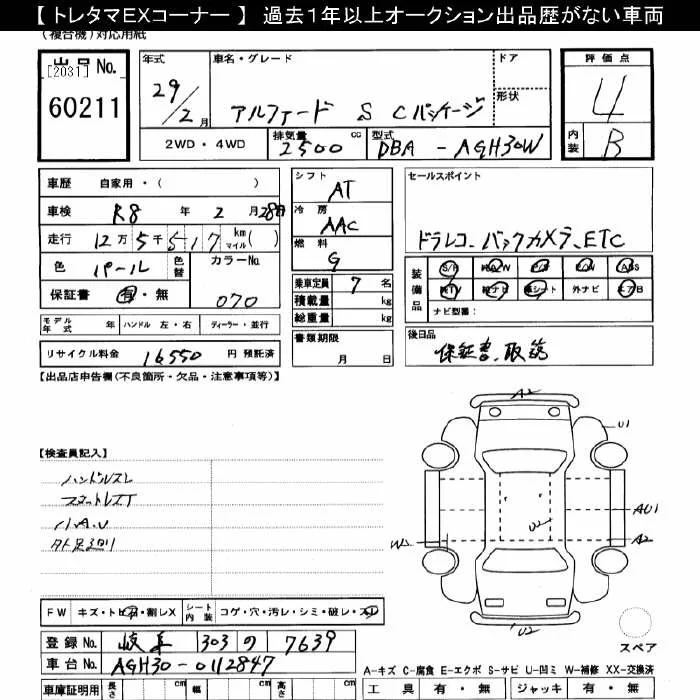 【 トレタマEXコーナー 】 過去1年以上オークション出品歴がない車両
(複合機)対応用紙
出品 No.
[2031]
60211
年式
29/2月
車名・グレード
アルファード S Cパッケージ
ドア
形状
評価点
4
内装 B
2WD・4WD
排気量 2500 cc
型式 DBA - AGH30W
車歴 自家用・( )
車検 R8 年 2 月 28日
走行 12万5千517 km マイル( )
色 パール 色替 カラーNo. 070
保証書 有・無
シフト AT
冷房 AAC
燃料 G
乗車定員 7 名
積載量 kg
総重量 kg
セールスポイント
ドラレコ、バックカメラ、ETC
装備品 S/R A/W P/S P/W ABS
純TV 純ナビ 革シート 外ナビ エアB
ナビ型番:
モデル年式 年 ハンドル 左・右 ディーラー・並行
リサイクル料金 16550 円 預託済
書類期限
月 日
後日品
保証書、取説
【出品店申告欄(不良箇所・欠品・注意事項等)】
【検査員記入】
ハンドルスレ
A2
U1
U2
AU1
A2
U2
スペア
FW キズ・トビ石・割レX シート内装 コゲ・穴・汚レ・シミ・破レ・スレ
登録 No. 岐阜 303 の 7639
車台 No. AGH30-0112847
A-キズ C-腐食 E-エクボ S-サビ U-凹ミ W-補修 XX-交換済
車庫証明用 長さ cm 幅 cm cm
工具 有・無 ジャッキ 有・無